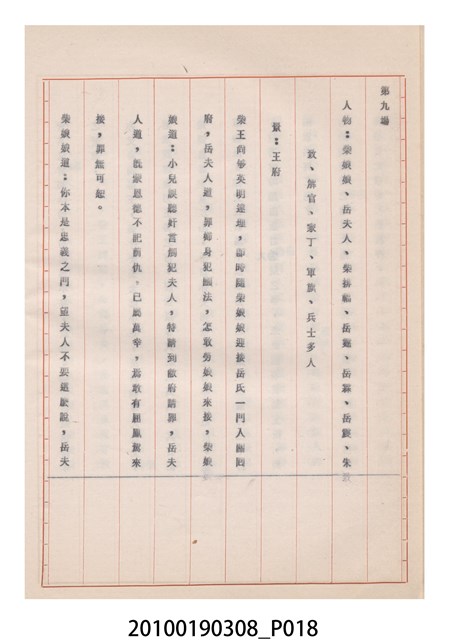 第九場
人物：柴娘娘、岳夫人、柴排福、岳雷、岳霖、岳震、朱
致、解官、家丁、軍旗、兵士多人
景：王府
柴王尚够英明運理，卽時隨柴娘娘迎接岳氏一門入
府，岳夫人道，罪婦身犯國法，怎敢勞娘娘來接，柴娘
娘道：小兒誤聽奸言觸犯夫人，特請到敝府請罪，岳夫
人道，旣蒙恩德不記前仇，已屬萬幸，焉敢有屈鳳駕來
接，罪無可恕。
柴娘娘道：你本是忠義之門，望夫人不要這麽說，岳夫
20100190308_P018